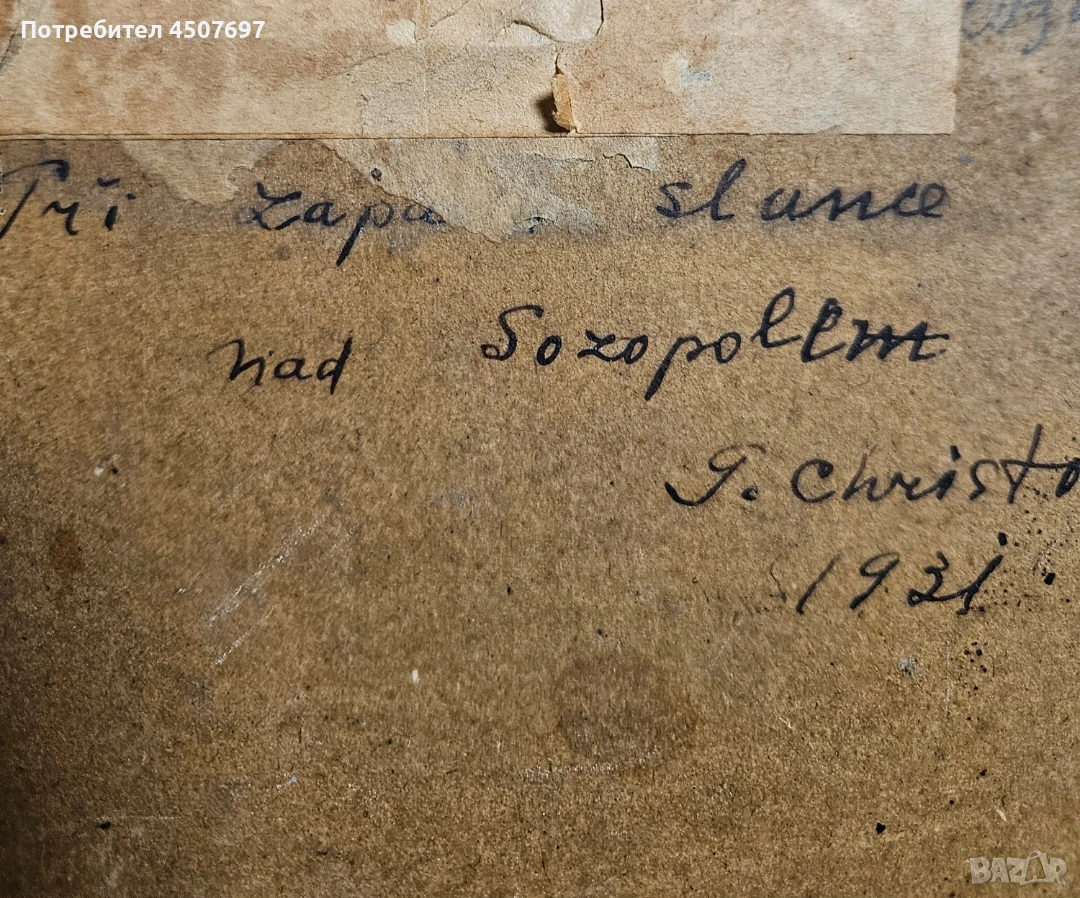 Потребител 4507697
Při zapa slunce
nad Sozopolem
G. Christo
1931
BAZAR